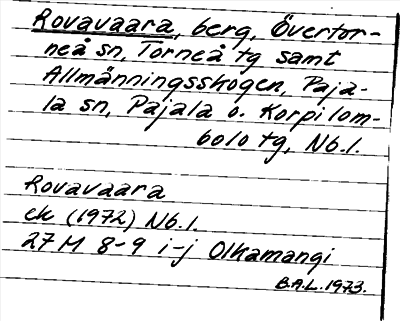 Rovavaara, berg, Övertor-
neå sn, Torneå tg samt
Allmänningsskogen, Paja-
la sn, Pajala o. Korpilom-
bolo tg, Nb.l.
Rovavaara
ek (1972) Nb.l.
27 M 8-9 i-j Olkamangi
B.A.L. 1973.